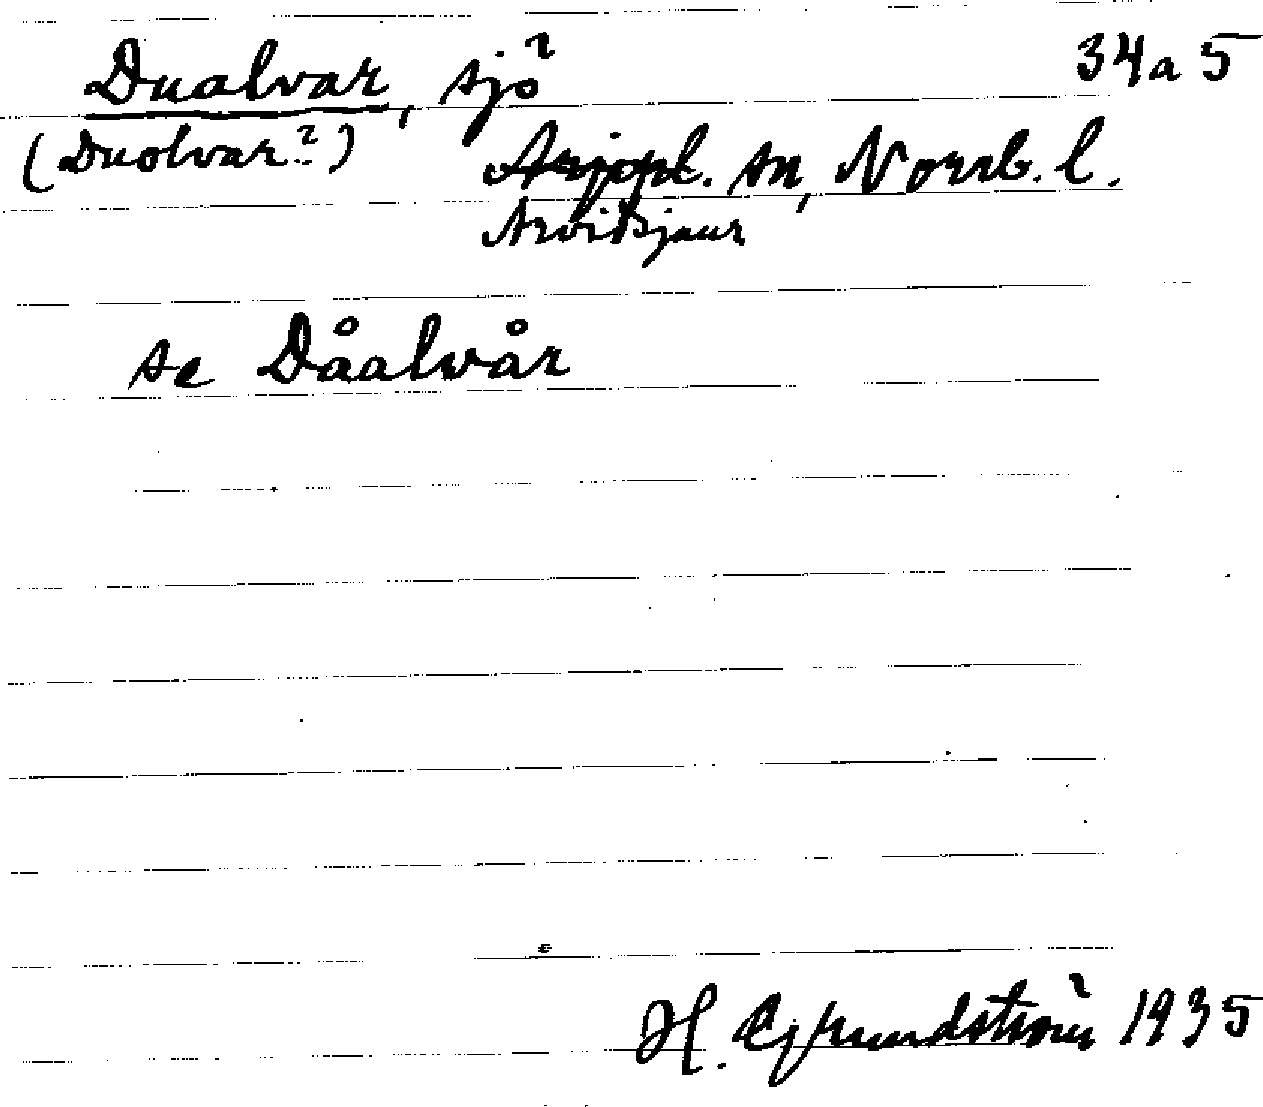 Dualvar, sjö 34a5
(Duolvar?) Arjepl. sn, Norrb. l.
Arvidsjaur
se Dåalvår
H. Grundström 1935